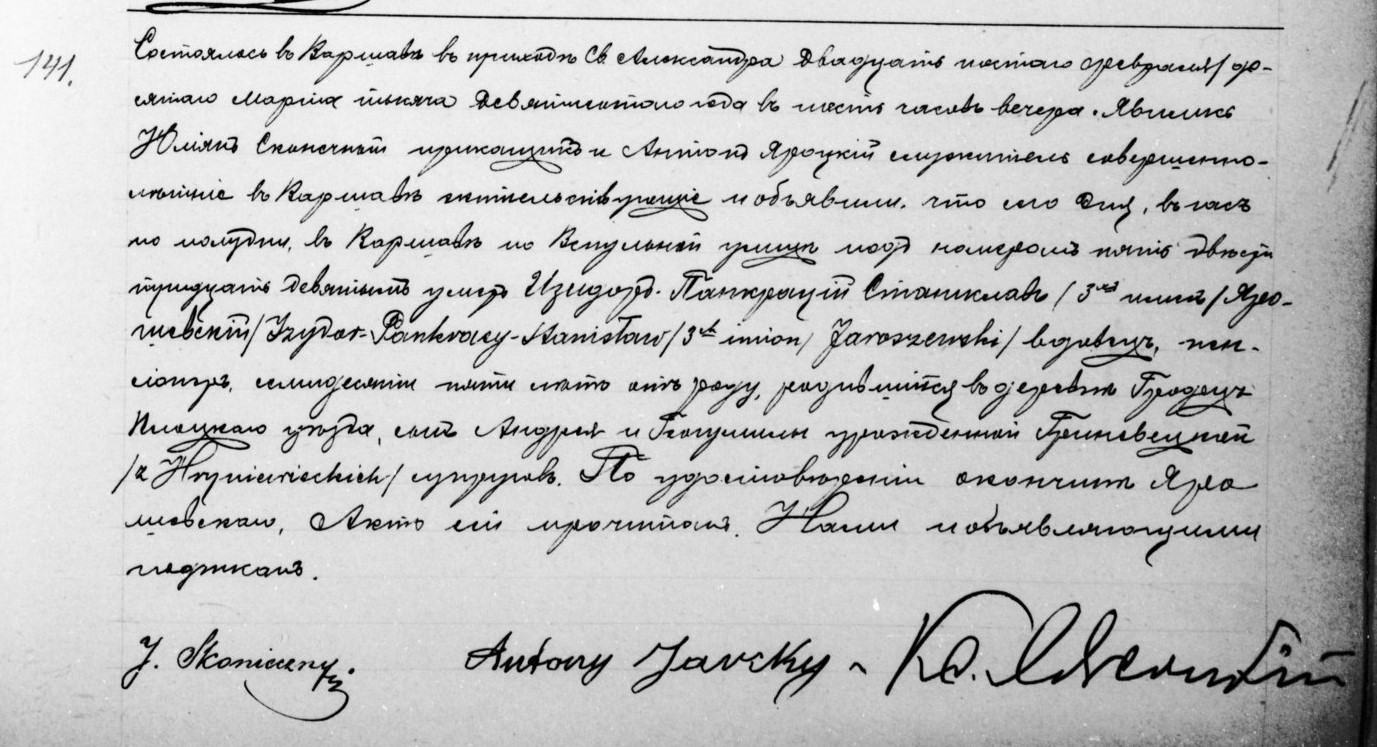 141.
Состоялось въ Варшавѣ въ приходѣ Св. Александра Двадцать шестаго февраля / де-
сятаго Марта тысяча Девятисотаго года въ шесть часовъ вечера. Явились
Юліянъ Сконечный прикащикъ и Антонъ Яроцкій служитель совершенно-
лѣтніе въ Варшавѣ жительствующіе и объявили, что сего Дня, въ часъ
по полудни, въ Варшавѣ по улицѣ подъ номеромъ пять Двѣсти
тридцать Девятымъ умеръ Изидоръ-Панкрацій Станиславъ / 3хъ именъ / Яро-
шевскій / Izydor-Pankracy-Stanisław / 3ch imion / Jaroszewski / вдовецъ, пен-
сіонеръ, семидесяти пяти лѣтъ отъ роду, родившійся въ деревнѣ Гродецъ
Плоцкаго уѣзда, сынъ Андрея и Богумилы урожденной Гриневецкой
/ z Hryniewieckich / супруговъ. По удостовѣреніи о кончинѣ Яро
шевскаго, Актъ сей прочитанъ, Нами и объявляющими
подписанъ.
J. Skonieczny.
Antony Jarocky
Кс.